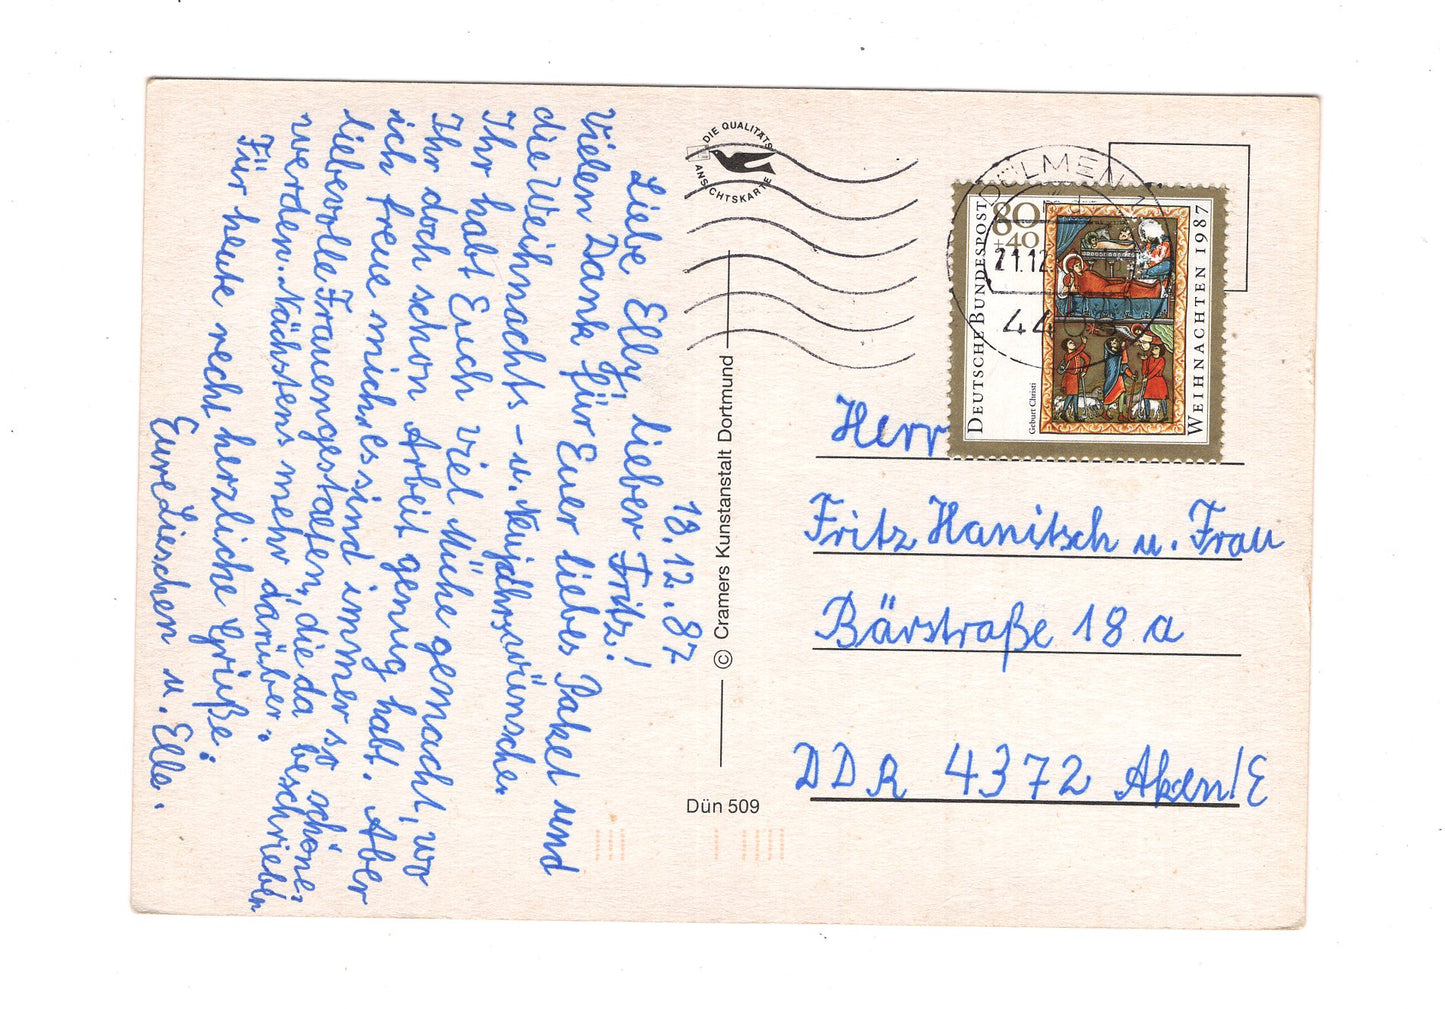 18.12.87
Liebe Elly, lieber Fritz!
Vielen Dank für Euer liebes Paket und
die Weihnachts – u. Neujahrswünsche.
Ihr habt Euch viel Mühe gemacht, wo
Ihr doch schon Arbeit genug habt. Aber
ich freue mich, es sind immer so schöne
liebevolle Frauengestalten, die da beschrieben
werden. Nächstens mehr darüber.
Für heute recht herzliche Grüße:
Eure Lieschen u. Ella.
DIE QUALITÄTS
ANSICHTSKARTE
© Cramers Kunstanstalt Dortmund
Dün 509
DÜLMEN 1
21.12
44
DEUTSCHE BUNDESPOST
80
+40
Geburt Christi
WEIHNACHTEN 1987
Herr
Fritz Hanitsch u. Frau
Bärstraße 18 a
DDR 4372 Aken/E